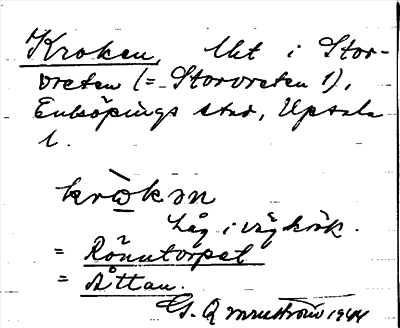 Kroken, lht i Stor-
vreten (= Storvreten 1),
Enköpings stad, Upsala
l.
kròkən
Låg i vägkrök.
= Rönntorpet
= Åttan.
1944